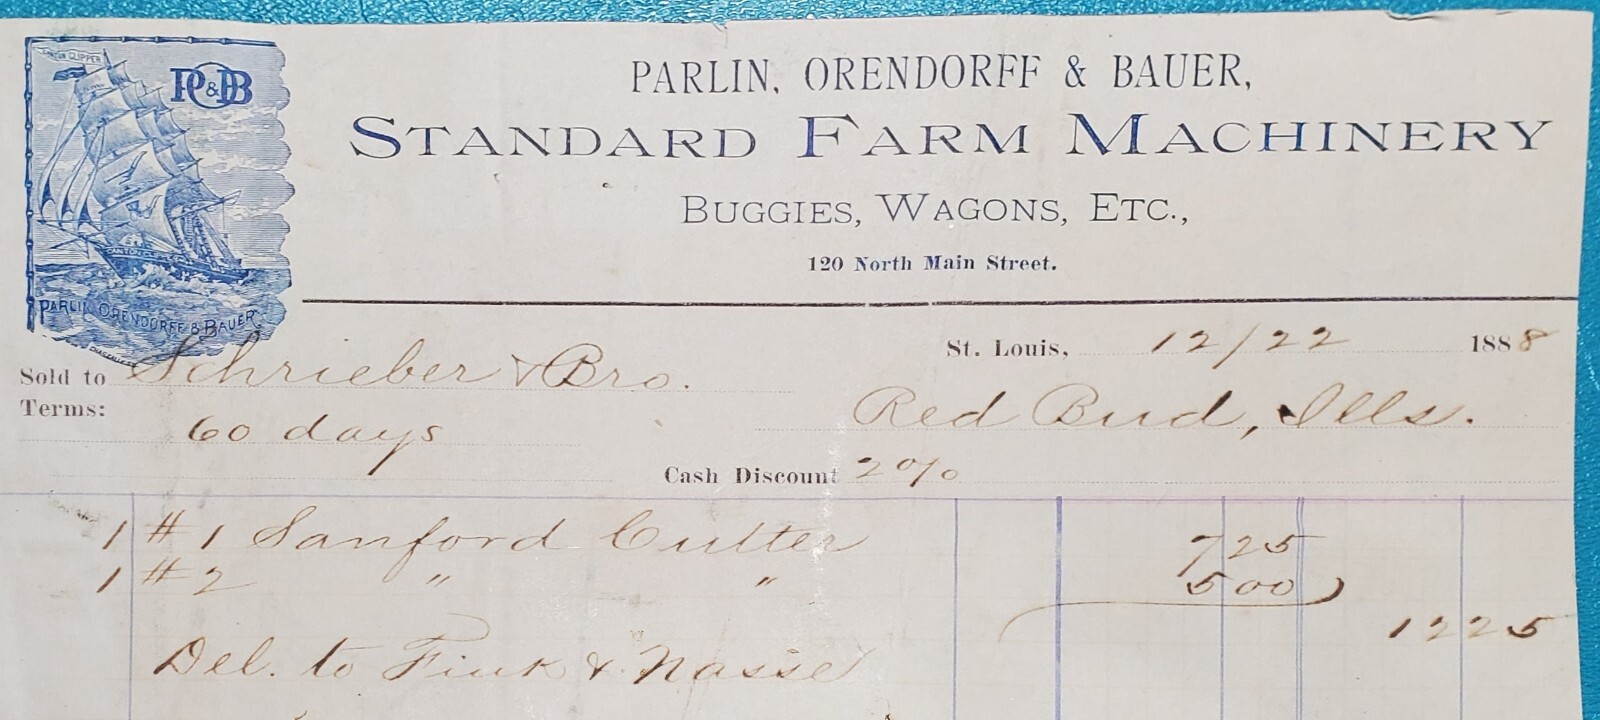 CANTON CLIPPER
PO&B
PARLIN, ORENDORFF & BAUER,
STANDARD FARM MACHINERY
BUGGIES, WAGONS, ETC.,
120 North Main Street.
PARLIN ORENDORFF & BAUER
St. Louis, 12/22 1888
Sold to Schrieber & Bro.
Red Bud, Ills.
Terms: 60 days
Cash Discount 2%
1 #1 Sanford Cutter 725
1 #2 " " 500
1225
Del. to Fink & Nasse